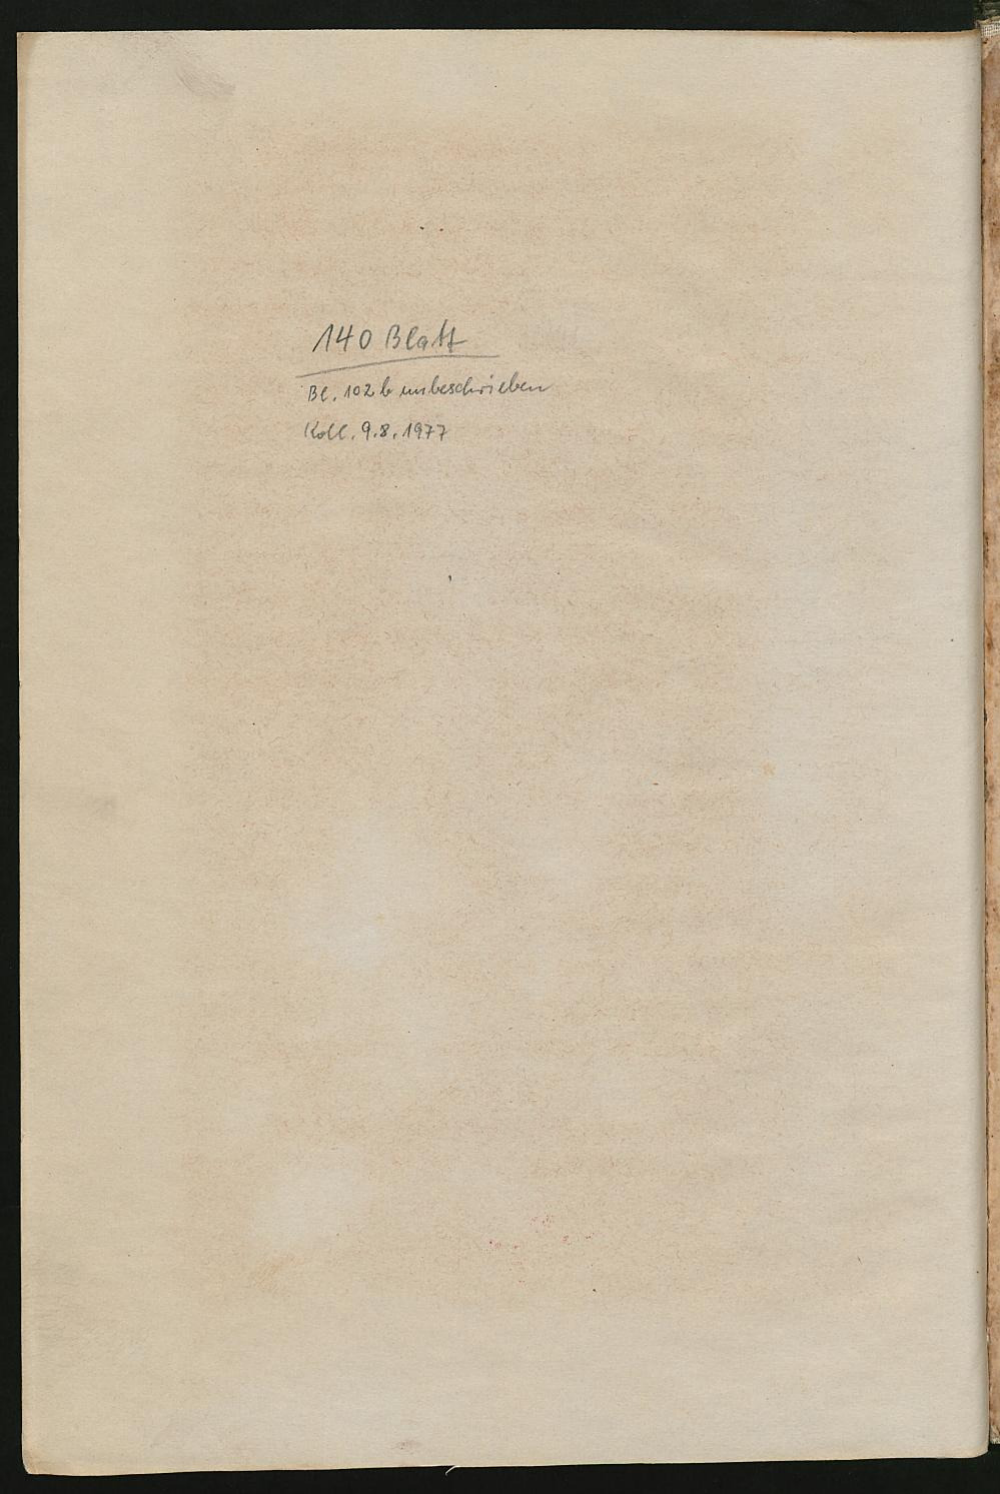 140 Blatt
Bl. 102b unbeschrieben
Koll. 9.8.1977